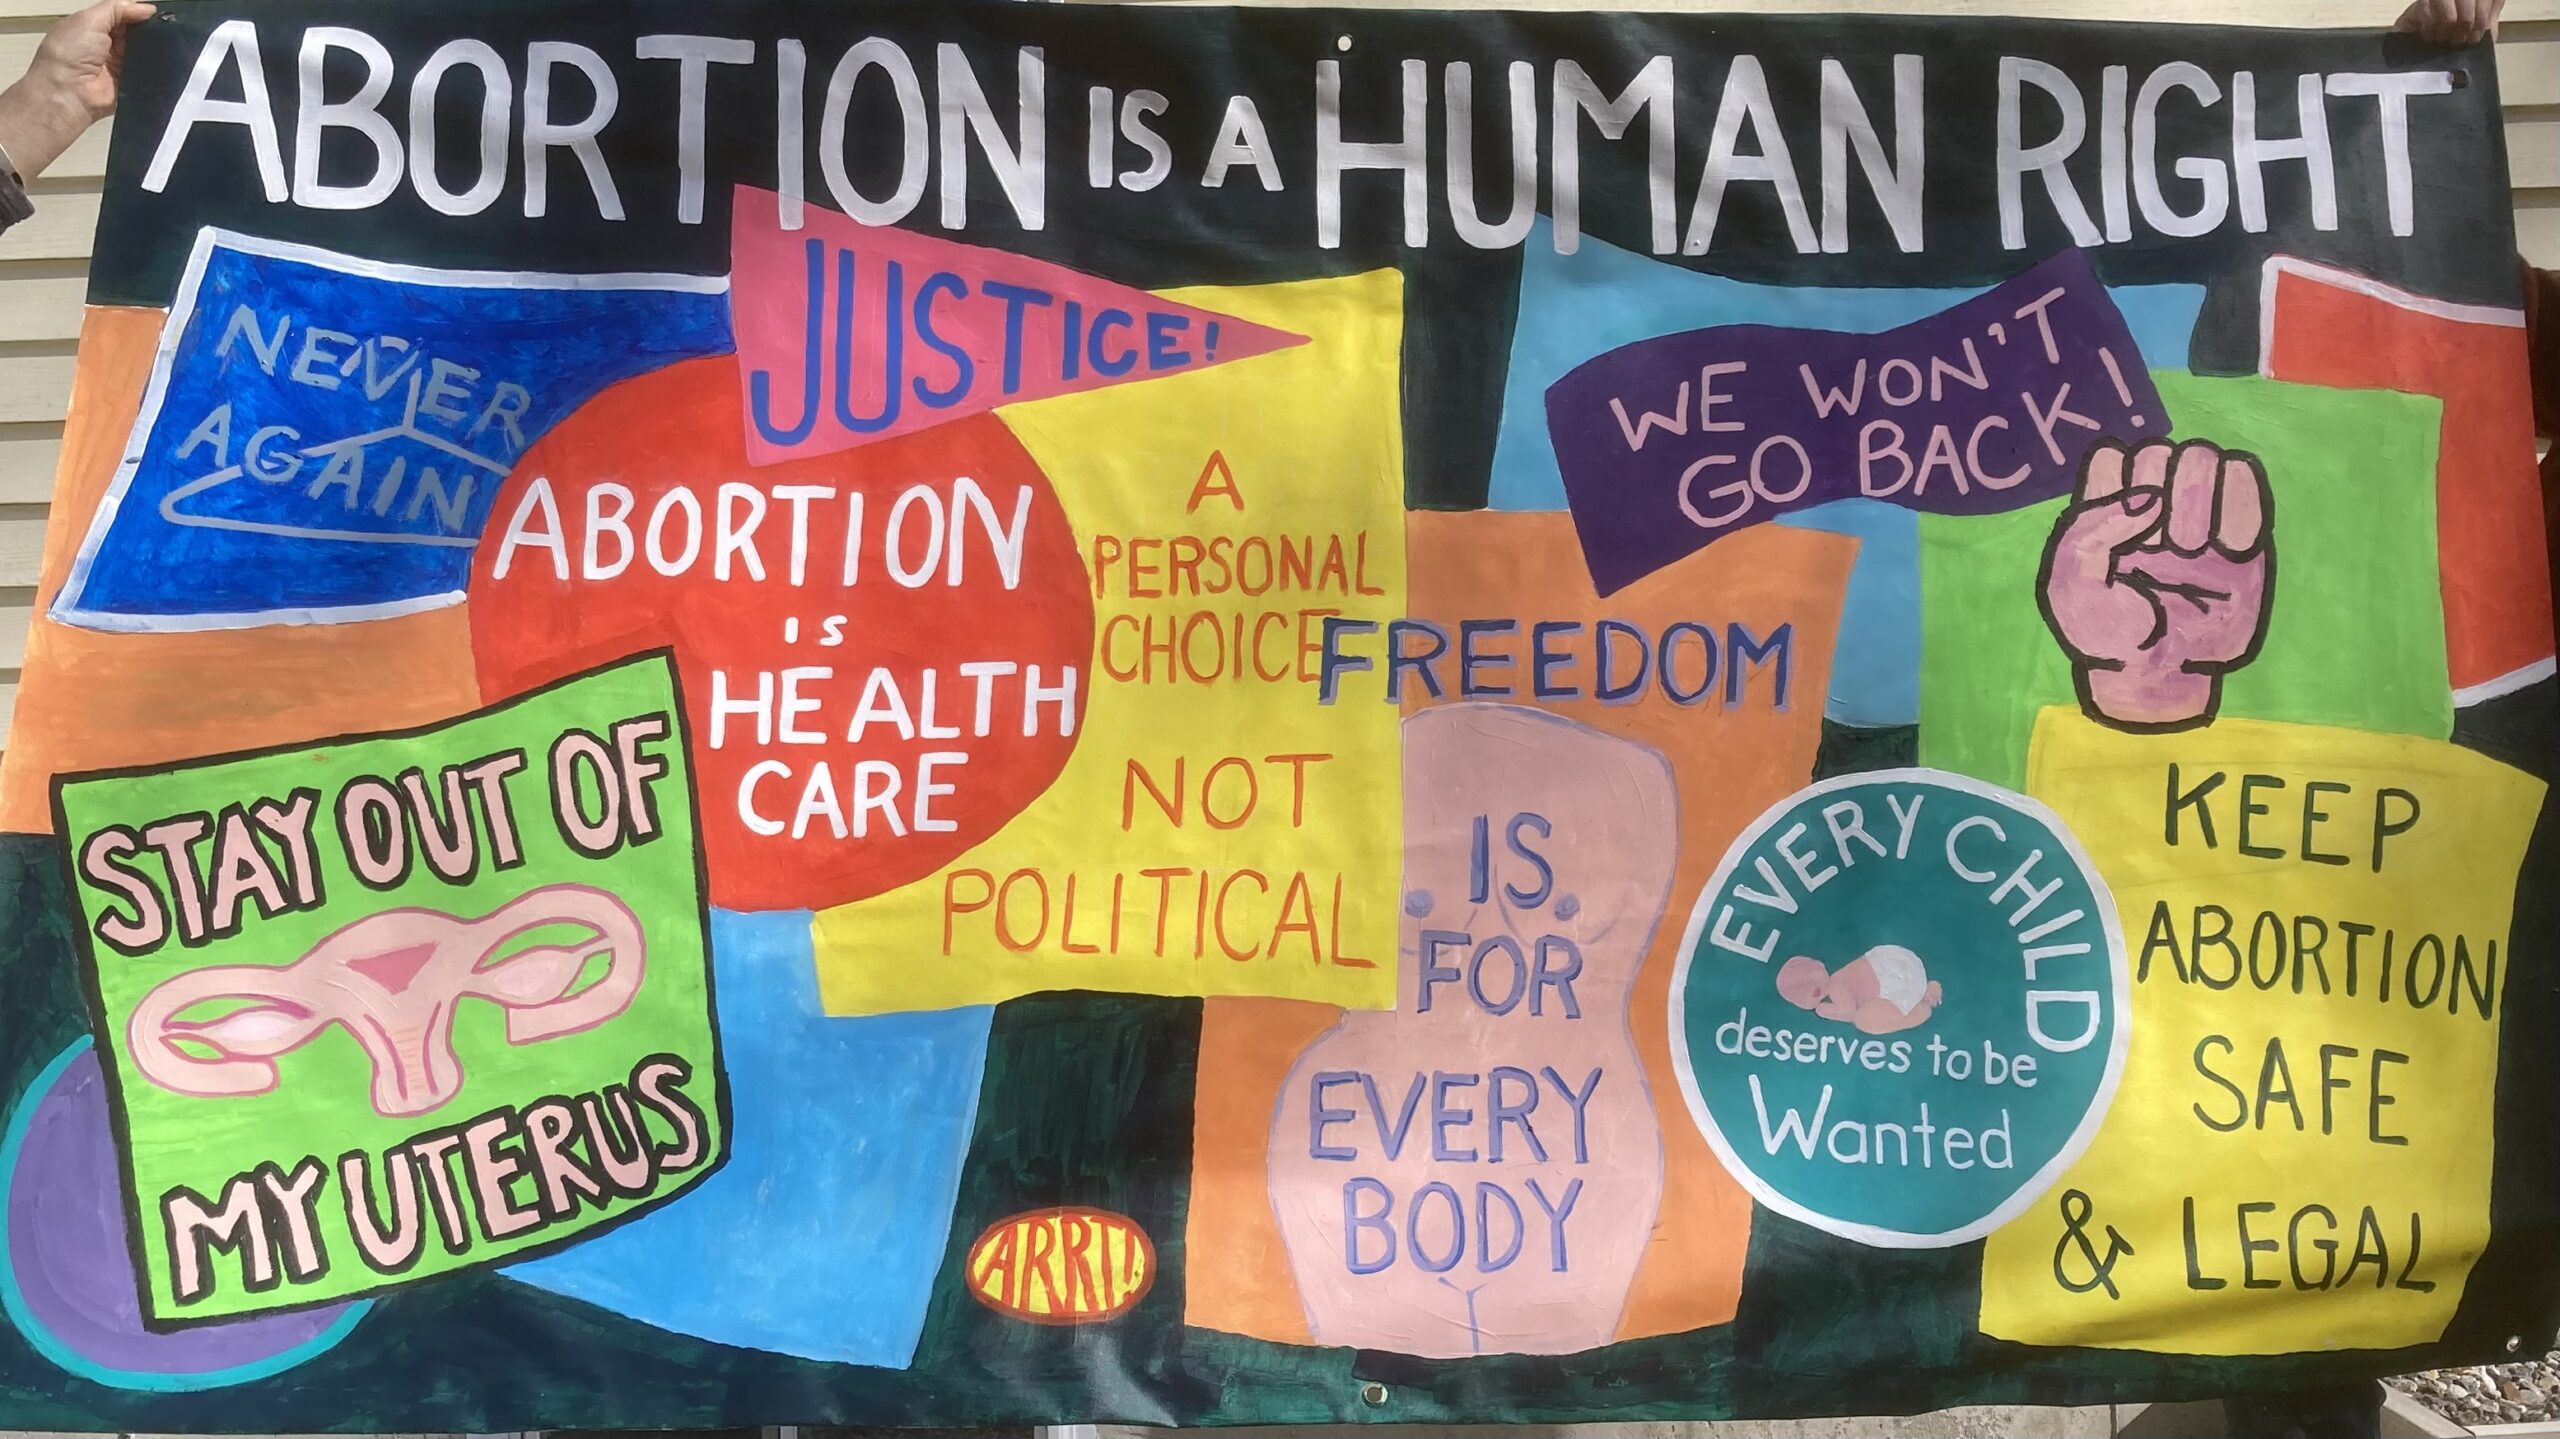 ABORTION IS A HUMAN RIGHT
NEVER
AGAIN
JUSTICE!
ABORTION
IS
HEALTH
CARE
A
PERSONAL
CHOICE
NOT
POLITICAL
WE WON'T
GO BACK!
FREEDOM
IS
FOR
EVERY
BODY
STAY OUT OF
MY UTERUS
ARRT!
EVERY CHILD
deserves to be
Wanted
KEEP
ABORTION
SAFE
& LEGAL